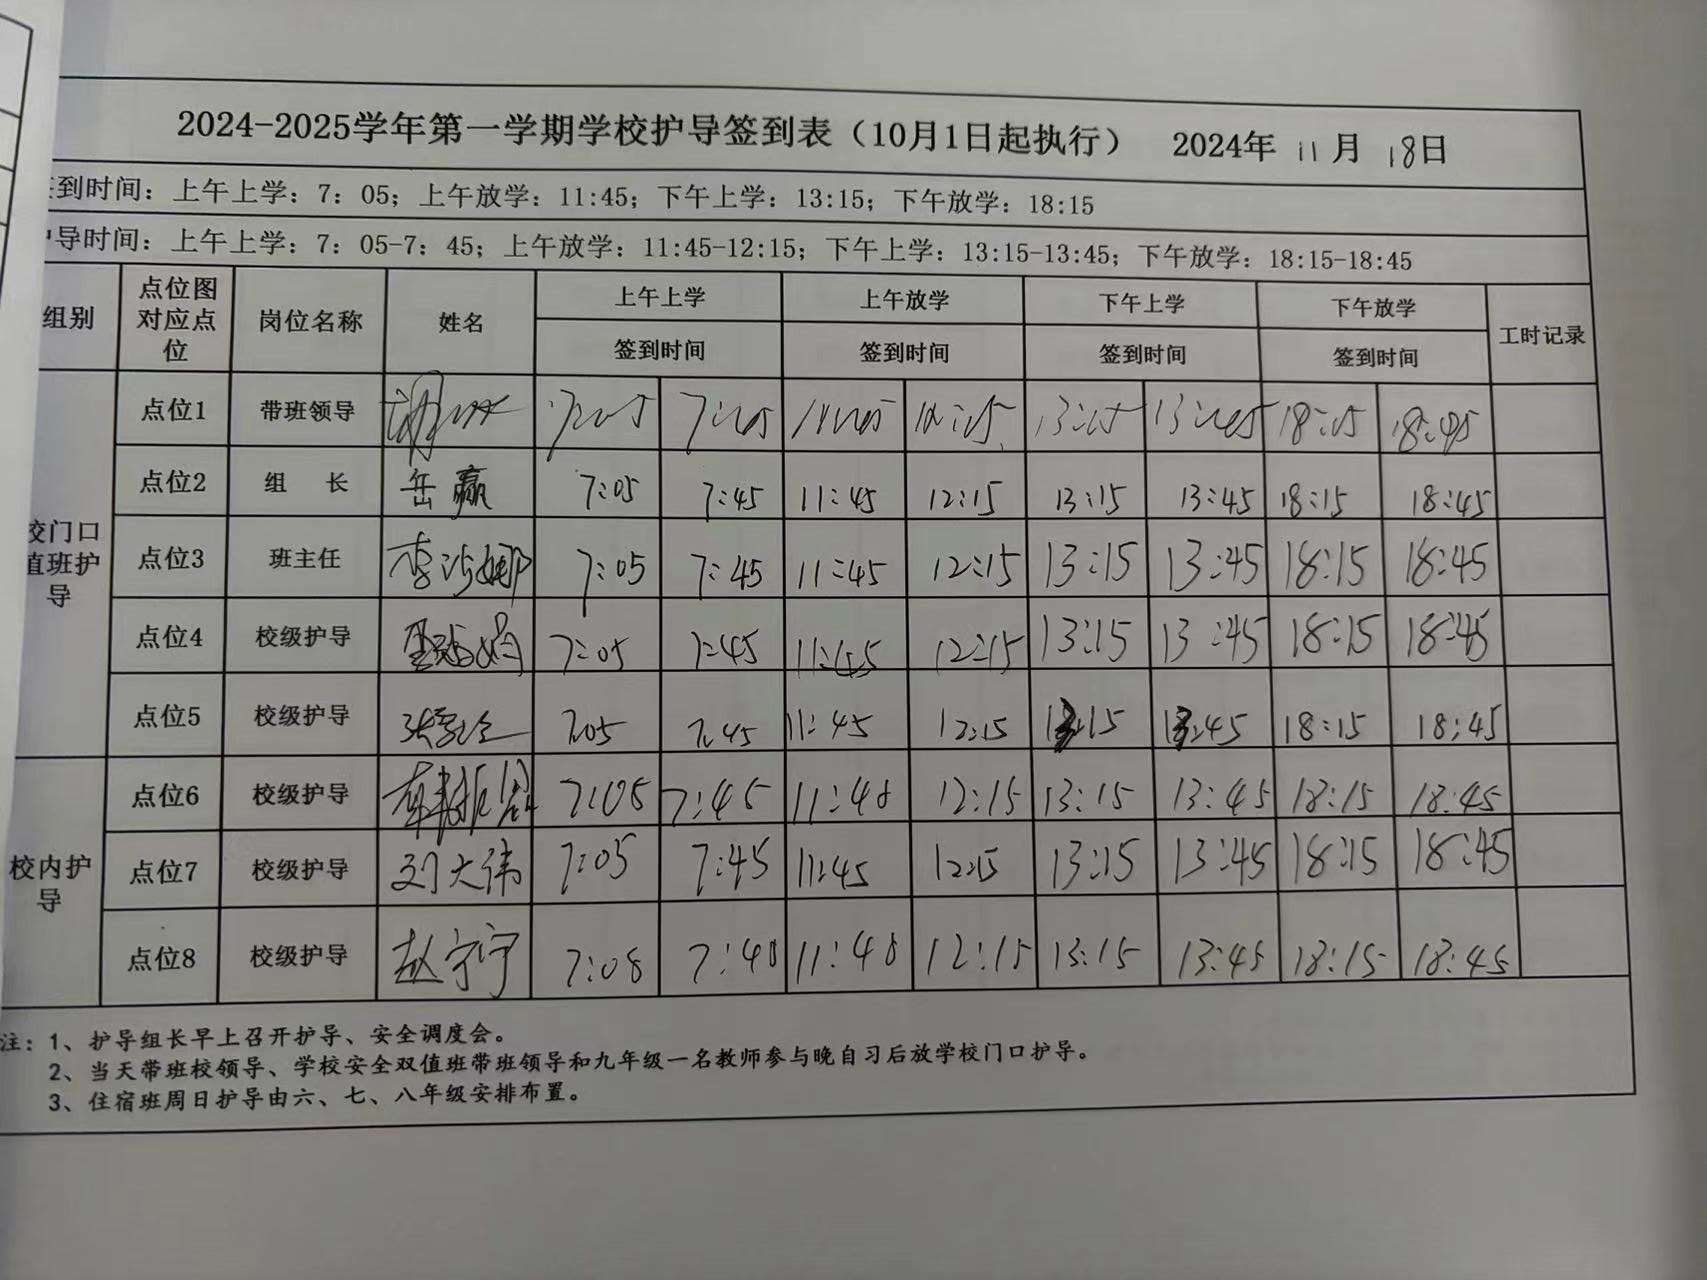 2024-2025学年第一学期学校护导签到表（10月1日起执行） 2024年 11 月 18日
到时间：上午上学：7：05；上午放学：11:45；下午上学：13:15；下午放学：18:15
导时间：上午上学：7：05-7：45；上午放学：11:45-12:15；下午上学：13:15-13:45；下午放学：18:15-18:45
组别 点位图对应点位 岗位名称 姓名 上午上学 上午放学 下午上学 下午放学 工时记录
签到时间 签到时间 签到时间 签到时间
校门口值班护导
点位1 带班领导 13:15 13:45 18:15 18:45
点位2 组 长 岳赢 7:05 7:45 11:45 12:15 13:15 13:45 18:15 18:45
点位3 班主任 7:05 7:45 11:45 12:15 13:15 13:45 18:15 18:45
点位4 校级护导 7:05 7:45 11:45 12:15 13:15 13:45 18:15 18:45
点位5 校级护导 7:05 7:45 11:45 12:15 13:15 13:45 18:15 18:45
校内护导
点位6 校级护导 7:05 7:45 11:45 12:15 13:15 13:45 18:15 18:45
点位7 校级护导 刘大伟 7:05 7:45 11:45 12:15 13:15 13:45 18:15 18:45
点位8 校级护导 赵宁宇 7:05 7:45 11:45 12:15 13:15 13:45 18:15 18:45
注：1、护导组长早上召开护导、安全调度会。
2、当天带班校领导、学校安全双值班带班领导和九年级一名教师参与晚自习后放学校门口护导。
3、住宿班周日护导由六、七、八年级安排布置。